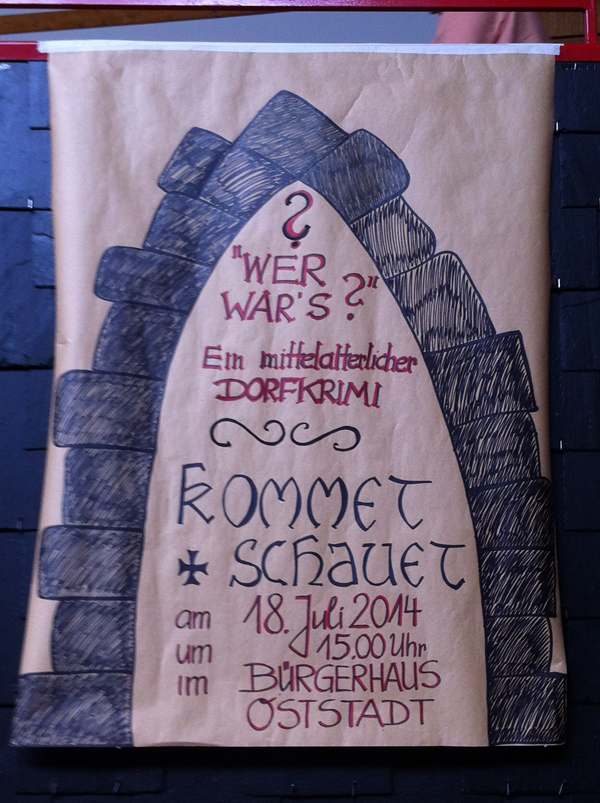 ?
"WER
WAR'S ?"
Ein mittelalterlicher
DORFKRIMI
KOMMET
+ SCHAUET
am 18. Juli 2014
um 15.00 Uhr
im BÜRGERHAUS
OSTSTADT